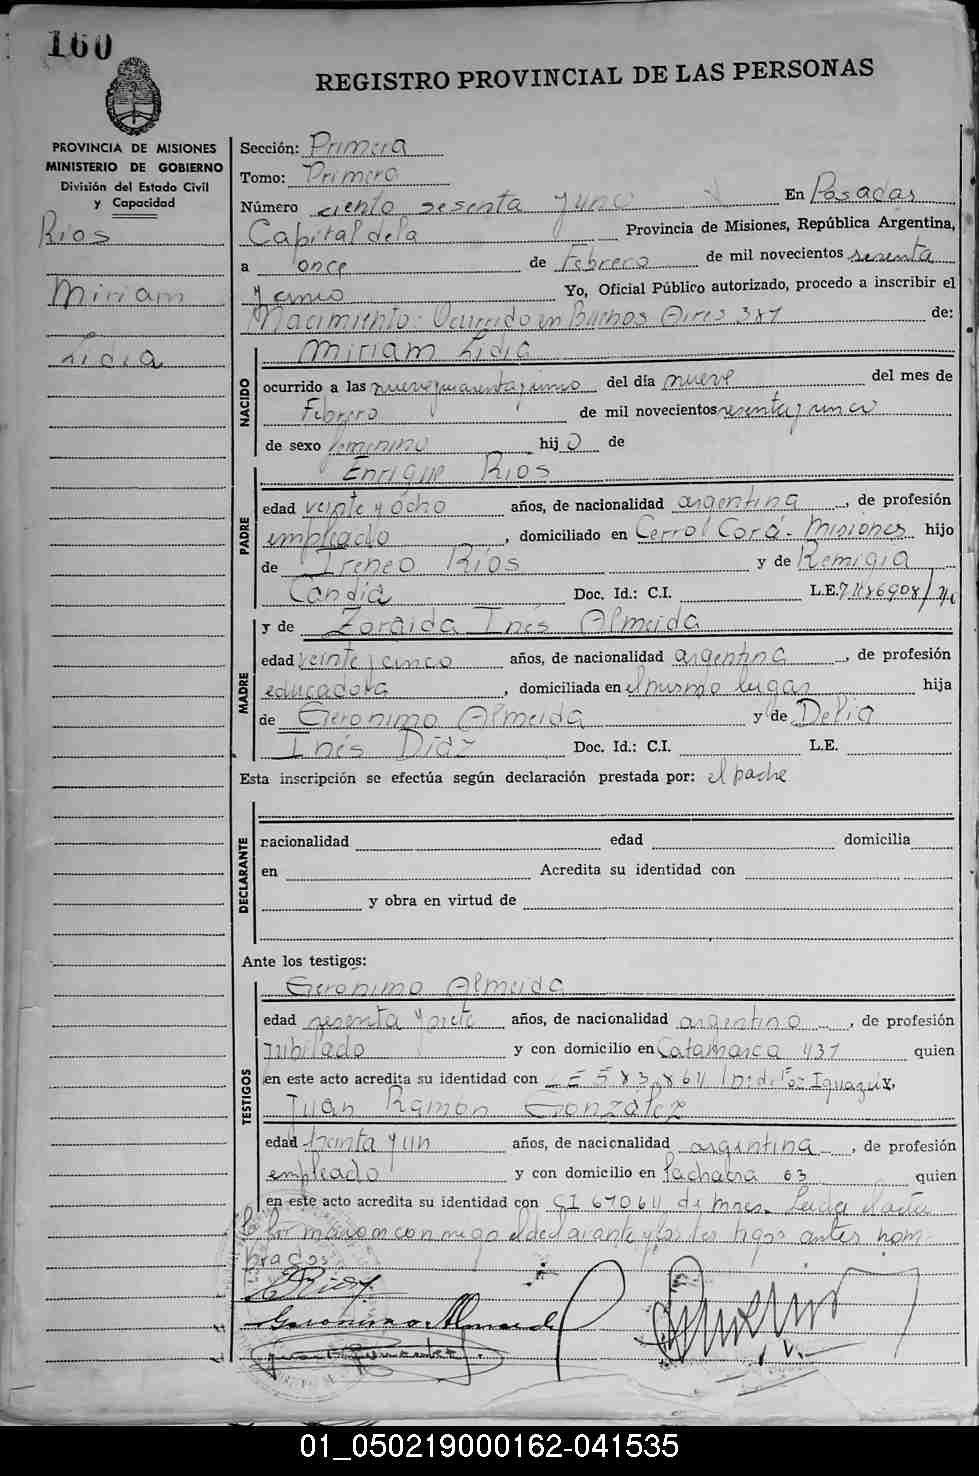 160
REGISTRO PROVINCIAL DE LAS PERSONAS
PROVINCIA DE MISIONES
MINISTERIO DE GOBIERNO
División del Estado Civil
y Capacidad
Rios
Miriam
Lidia
Sección: Primera
Tomo: Primero
Número ciento sesenta y uno En Posadas
Capital de la Provincia de Misiones, República Argentina,
a once de Febrero de mil novecientos sesenta
y uno Yo, Oficial Público autorizado, procedo a inscribir el
Nacimiento: Ocurrido en Buenos Aires 387 de:
NACIDO
Miriam Lidia
ocurrido a las nueve y cuarenta y cinco del día nueve del mes de
Febrero de mil novecientos sesenta y uno
de sexo femenino hijo de
PADRE
Enrique Rios
edad veinte y ocho años, de nacionalidad argentina, de profesión
empleado, domiciliado en Cerro Corá - Misiones hijo
de Ireneo Ríos y de Remigia
Candia Doc. Id.: C.I. L.E.
MADRE
y de Zoraida Inés Almeida
edad veinte y cinco años, de nacionalidad argentina, de profesión
educadora, domiciliada en el mismo lugar hija
de Gerónimo Almeida y de Delia
Inés Diaz Doc. Id.: C.I. L.E.
Esta inscripción se efectúa según declaración prestada por: el padre
DECLARANTE
nacionalidad edad domicilia
en Acredita su identidad con
y obra en virtud de
Ante los testigos:
TESTIGOS
Gerónimo Almeida
edad sesenta y siete años, de nacionalidad argentino, de profesión
Jubilado y con domicilio en Catamarca 437 quien
en este acto acredita su identidad con Iguazú y,
Juan Ramón González
edad treinta y un años, de nacionalidad argentina, de profesión
empleado y con domicilio en Pachacra 63 quien
en este acto acredita su identidad con CI 670611 de Mnes. Leida el acta
la firmaron conmigo el declarante y los testigos antes nom
brados
E Rios
Geronimo Almeida
01_050219000162-041535